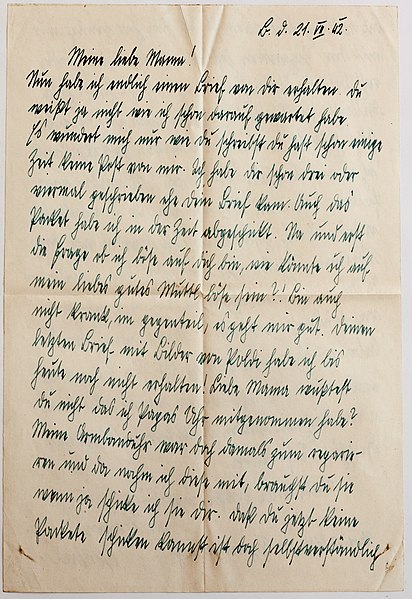 B. d. 21. VI. 42.
Meine liebe Mama!
Nun habe ich endlich einen Brief von dir erhalten. Du
weißt ja nicht wie ich schon darauf gewartet habe
Es wundert mich nur wie du schreibst du hast schon einige
Zeit keine Post von mir. Ich habe dir schon drei oder
viermal geschrieben ehe dein Brief kam. Auch das
Packet habe ich in der Zeit abgeschickt. Na und erst
die Frage ob ich böse auf dich bin, wie könnte ich auf
mein liebes gutes Muttl böse sein?! Bin auch
nicht krank, im gegenteil, es geht mir gut. Deinen
letzten Brief mit Bilder von Poldi habe ich bis
heute noch nicht erhalten! Liebe Mama wußtest
du nicht das ich Papas Uhr mitgenommen habe?
Meine Armbanduhr war doch damals zum reparie-
ren und da nahm ich diese mit, brauchst du sie
wenn ja schicke ich sie dir. Daß du jetzt keine
Packete schicken kannst ist doch selbstverständlich